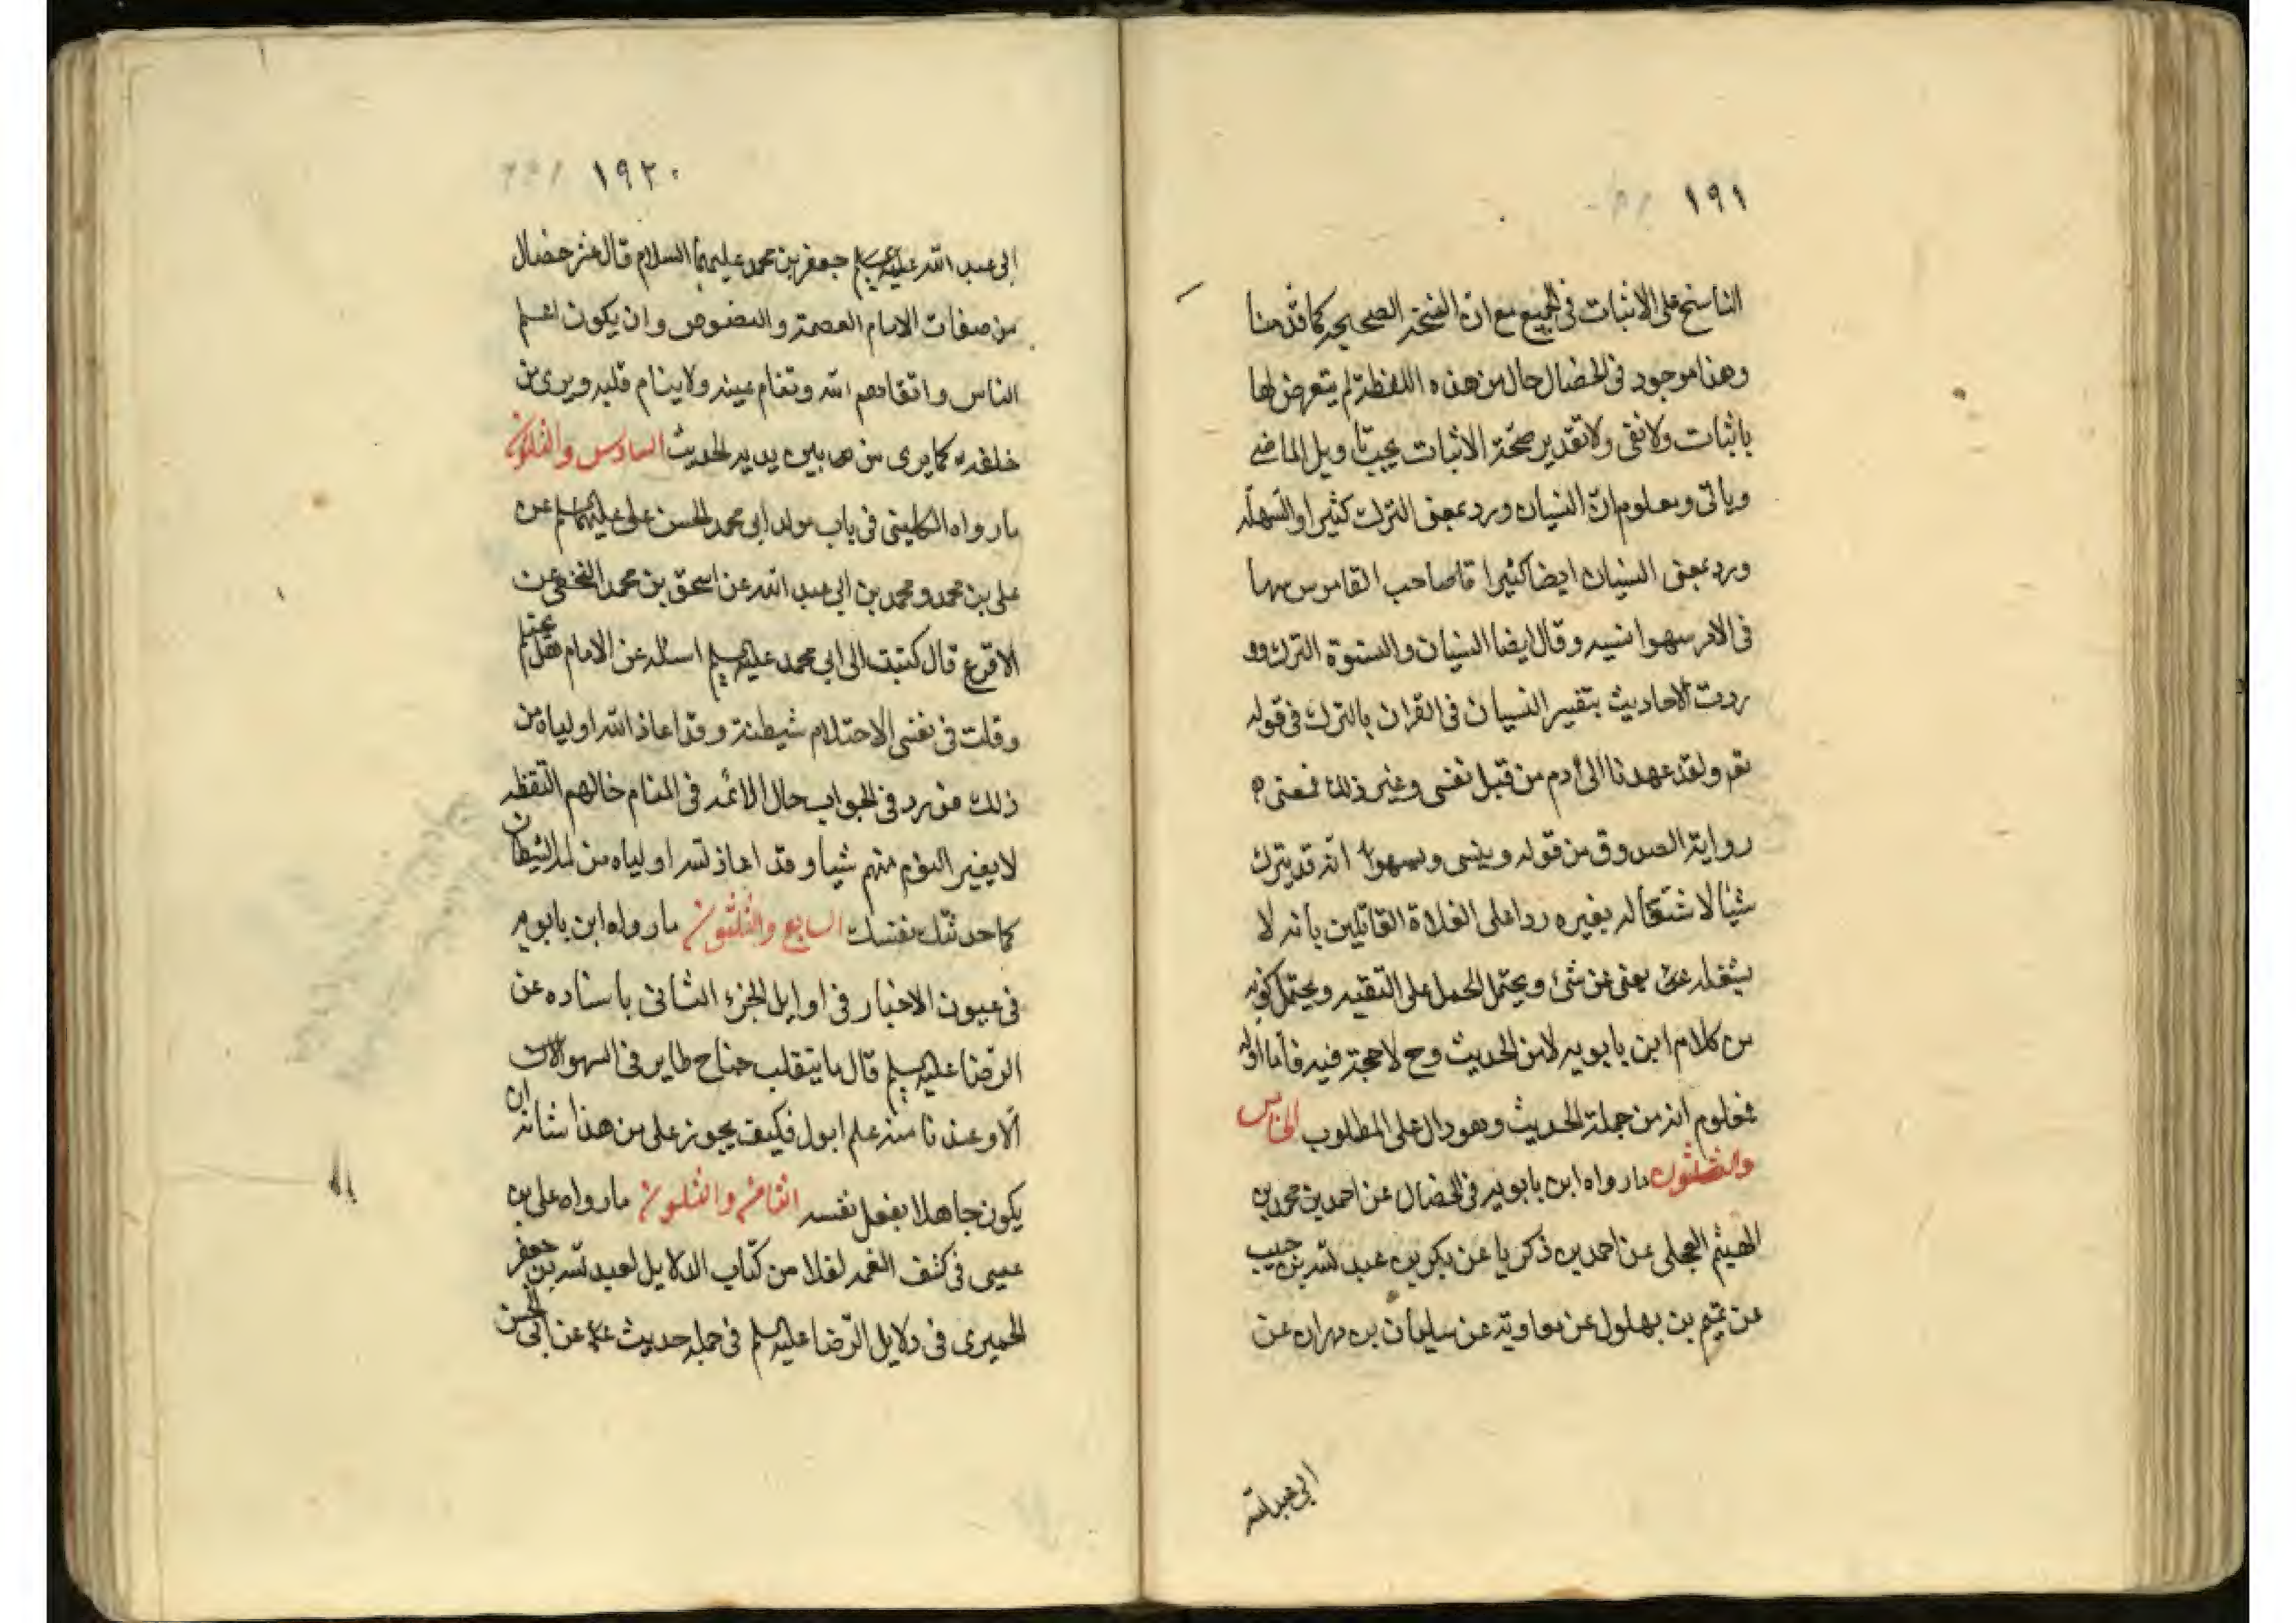 ١٩١
الناسخ على الاثبات فى الجميع مع ان النسخة الصحيحة كما قدمنا
وهذا موجود فى الخصال خال من هذه اللفظة لم يتعرض لها
باثبات ولا نفى ولا تقدير صحّة الاثبات يجب تاويل الماضى
وياتى ومعلوم انّ النسيان ورد بمعنى الترك كثيرا والسهو
ورد بمعنى النسيان ايضا كثيرا قال صاحب القاموس سها
فى الامر سهوا نسيه وقال ايضا النسيان والنسوة الترك وو
ردت الاحاديث بتفسير النسيان فى القران بالترك فى قوله
تعم ولقد عهدنا الى ادم من قبل فنسى وغير ذلك فمعنى
رواية الصدوق من قوله وينسى ويسهو انه قد يترك
شيئا لاشتغاله بغيره ردا على الغلاة القائلين بانه لا
يشغله شئ يعنى عن شئ ويحتمل الحمل على التقية ويحتمل كونه
من كلام ابن بابويه لا من الحديث وح لا حجة فيه فاما اوله
فمعلوم انه من جملة الحديث وهو دال على المطلوب الخامس
والثلثون ما رواه ابن بابويه فى الخصال عن احمد بن محمد بن
الهيثم العجلى عن احمد بن زكريا عن بكر بن عبد الله بن حبيب
عن تميم بن بهلول عن معاوية عن سليمان بن مهران عن
ابى عبد الله
١٩٢
ابى عبد الله جعفر بن محمد عليهما السلام قال عشر خصال
من صفات الامام العصمة والنصوص وان يكون اعلم
الناس واتقاهم لله وتنام عينه ولا ينام قلبه ويرى من
خلفه كما يرى من بين يديه الحديث السادس والثلثون
ما رواه الكلينى فى باب مولد ابى محمد الحسن على عليهما عن
على بن محمد ومحمد بن ابى عبد الله عن اسحق بن محمد النخعى عن
الاقرع قال كتبت الى ابى محمد عليه اسئله عن الامام هل يحتلم
وقلت فى نفسى الاحتلام شيطنة وقد اعاذ الله اولياه من
ذلك فورد فى الجواب حال الائمه فى المنام حالهم اليقظه
لا يغير النوم منهم شيأ وقد اعاذ الله اولياه من لمة الشيطان
كما حدثتك نفسك السابع والثلثون ما رواه ابن بابويه
فى عيون الاخبار فى اوايل الجزء الثانى باسناده عن
الرضا عليه قال ما يتقلب جناح طاير فى الهواء
الاوعندنا منه علم فكيف يجوز على من هذا شانه ان
يكون جاهلا بفعل نفسه الثامن والثلثون ما رواه على بن
عيسى فى كشف الغمه نقلا من كتاب الدلايل لعبد الله بن جعفر
الحميرى فى دلايل الرضا عليه فى جمله حديث عن ابى الحسن